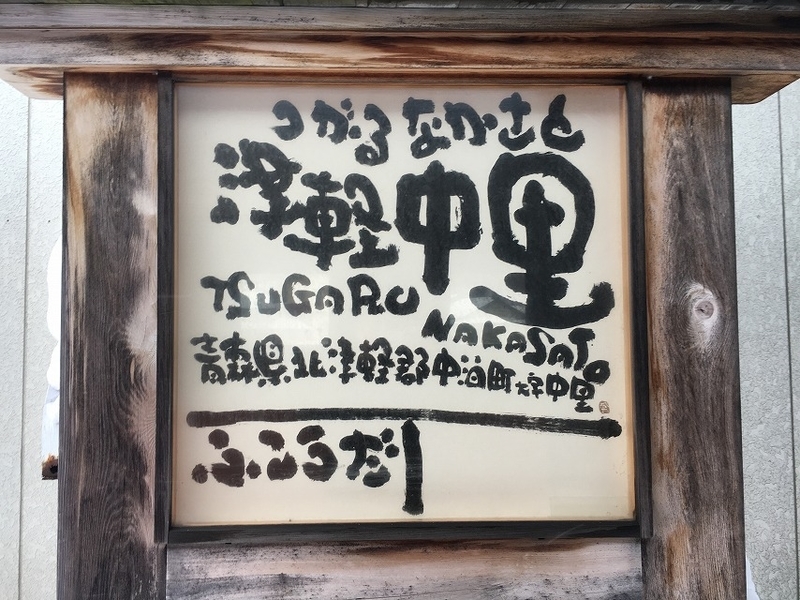 つがるなかさと
津軽中里
TSUGARU
NAKASATO
青森県北津軽郡中泊町大字中里
ふこうだ